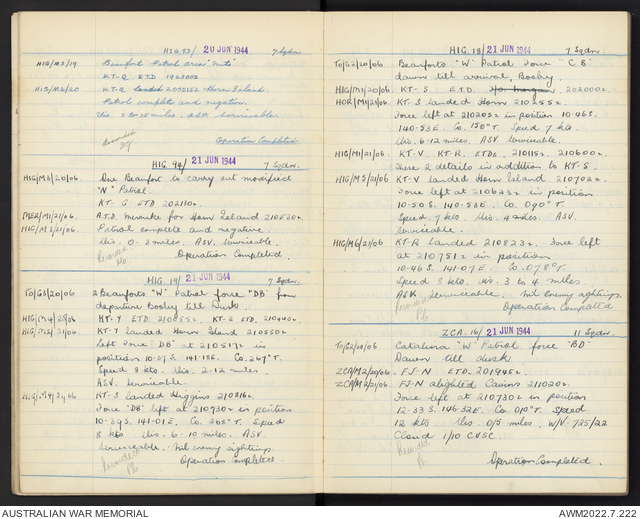 HIG 93/ 20 JUN 1944 7 Sqdn
HIG/M3/19 Beaufort Patrol area "Nuts"
KT-Q ETD 192300z
HIG/M2/20 KT-Q landed Horn Island.
Patrol complete and negative.
Vis. 2 to 15 miles. ASV. Serviceable.
Operation Completed
HIG 94/ 21 JUN 1944 7 Sqdn.
HIG/M3/20/06 One Beaufort to carry out modified
"N" Patrol.
KT-G ETD 202110z.
MER/M1/21/06 A.T.D. Merauke for Horn Island 210530z.
HIG/M2/21/06 Patrol complete and negative.
Vis. 0-3 miles. ASV. Serviceable.
Operation Completed.
HIG. 19/ 21 JUN 1944 7 Sqdn.
TO/G3/20/06 2 Beauforts "W" Patrol force "DB" from
departure Booby till Dusk.
KT-Y ETD
KT-Y landed Horn Island 210550z
Left Force "DB" at 210517z in
position 10-09S. 141-18E. Co. 267°T.
Speed 8 kts. Vis. 2-12 miles.
ASV. Serviceable.
KT-S landed Higgins 210816z.
Force "DB" left at 210730z in position
10-39S. 141-01E. Co. 268°T. Speed
8 kts Vis. 6-10 miles. ASV.
Serviceable. Nil enemy sightings.
Operation Completed.
HIG. 18/ 21 JUN 1944 7 Sqdn.
TO/G2/20/06 Beauforts "W" Patrol Force "CB"
dawn till arrival, Booby.
HIG/M1/20/06 KT-S ETD. 202000z.
HOR/M1/21/06 KT-S landed Horn 210255z.
Force left at 210205z in position 10-46S.
140-53E. Co. 130°T. Speed 7 kts.
Vis. 6-12 miles. ASV Serviceable.
HIG/M1/21/06 KT-V. KT-R. ETDs. 210115z. 210600z.
These 2 details in addition to KT-S.
HIG/M5/21/06 KT-V landed Horn Island 210702z.
Force left at 210623z in position
10-50S. 140-53E. Co. 090°T.
Speed 7 kts. Vis. 4 miles. ASV.
Serviceable.
HIG/M6/21/06 KT-R landed 210823z. Force left
at 210751z in position
10-46S. 141-07E. Co. 078°T.
Speed 8 kts. Vis. 3 to 4 miles
ASV. Serviceable. Nil enemy sightings.
Operation Completed
ZCA. 16/ 21 JUN 1944 11 Sqdn.
TO/G2/20/06 Catalina "W" Patrol force "BD"
Dawn till dusk
ZCA/M2/20/06. FJ-N ETD. 201945z.
ZCA/M2/21/06. FJ-N alighted Cairns 211020z.
Force left at 210730z in position
12-33S. 146-32E. Co. 010°T. Speed
12 kts. Vis. 0/5 miles. W/V 135/22
Cloud 1/10 CUSC.
Operation Completed.
AUSTRALIAN WAR MEMORIAL
AWM2022.7.222